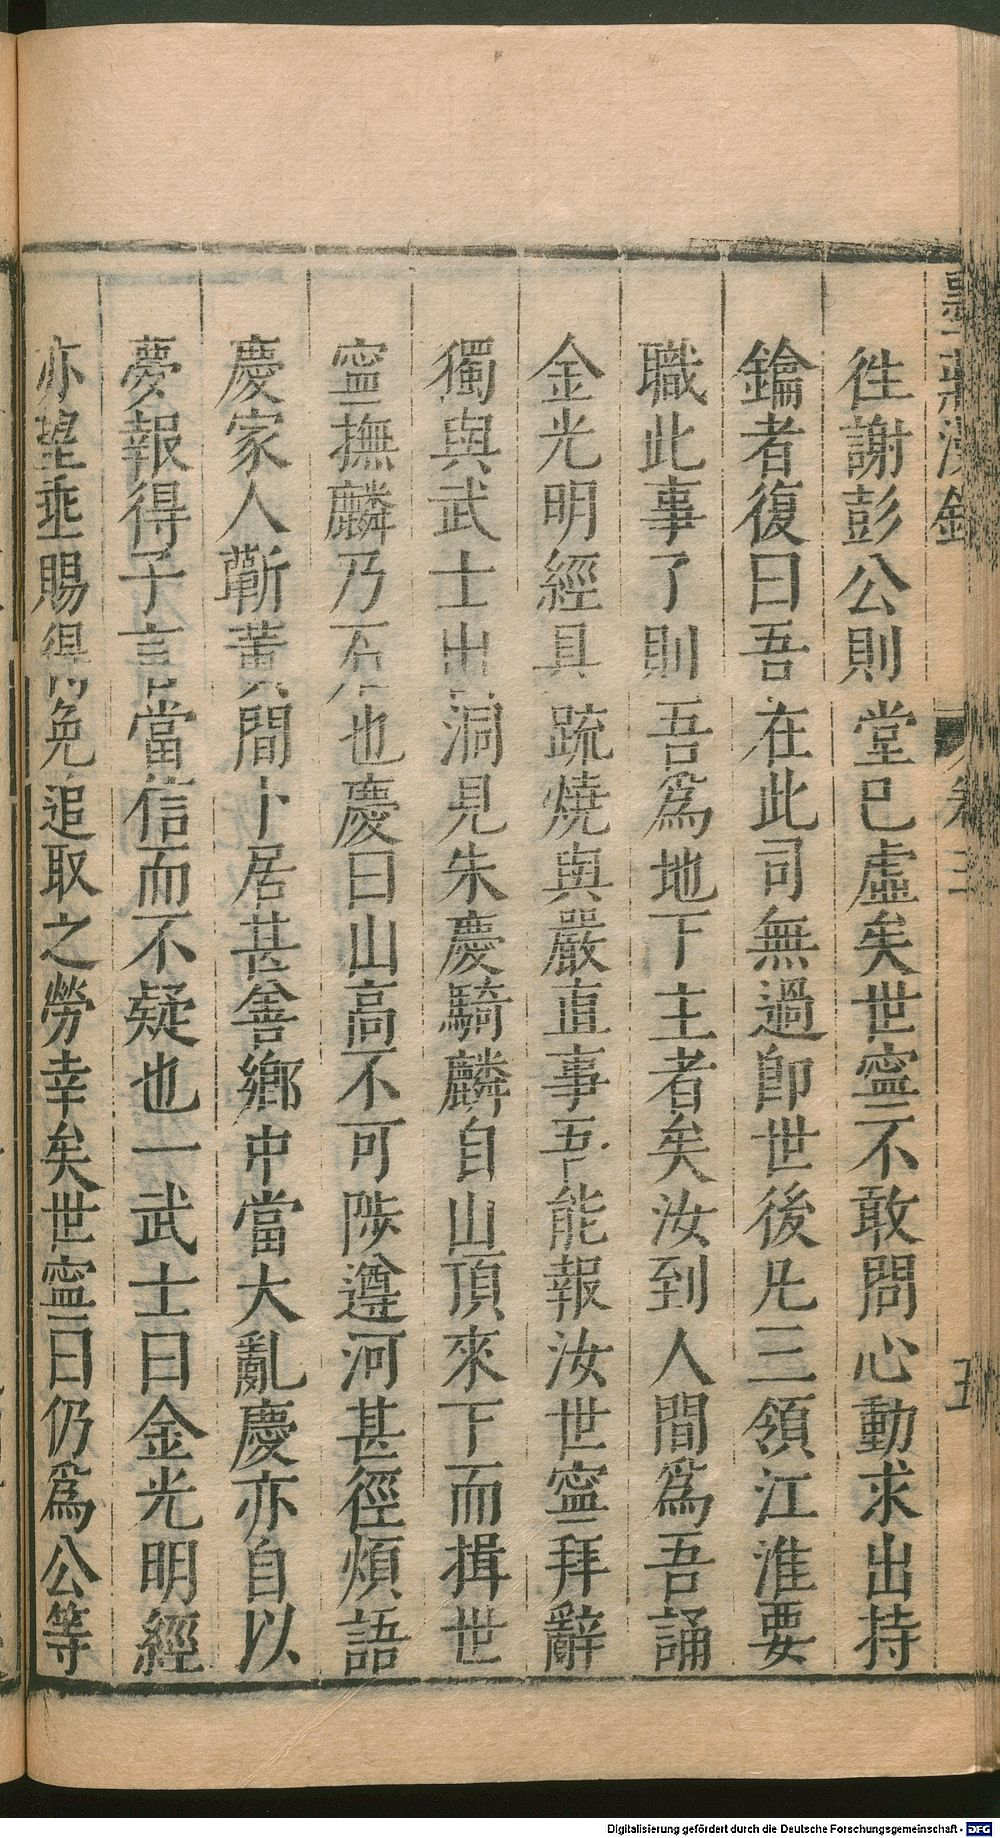 墨莊漫錄 卷三 五
徃謝彭公則堂已虛矣世寧不敢問心動求出持
鑰者復曰吾在此司無過卽世後凡三領江淮要
職此事了則吾爲地下主者矣汝到人間爲吾誦
金光明經具䟽燒與嚴直事吾能報汝世寧拜辭
獨與武士出洞見朱慶騎麟自山頂來下而揖世
寧撫麟乃石也慶曰山高不可陟遵河甚徑煩語
慶家人蘄黃間卜居甚善鄉中當大亂慶亦自以
夢報得子言當信而不疑也一武士曰金光明經
亦望乖賜得免追取之勞幸矣世寧曰仍爲公等
Digitalisierung gefördert durch die Deutsche Forschungsgemeinschaft - DFG